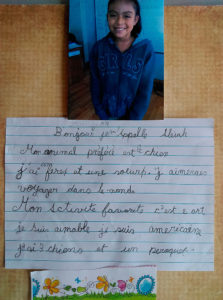 GIRLS
Bonjour je m'appelle
Mon animal préféré est chien
j'ai frères et une soeur. j'aimerais
voyager dans le monde
Mon activité favorite c'est art
Je suis aimable je suis americaine
j'ai 3 chiens et un perroquet